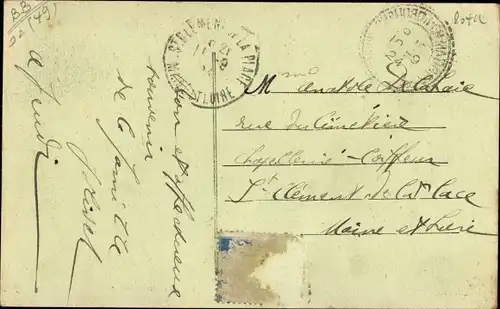 BB
(49)
ST CLEMENT DE LA PLACE
MAINE ET LOIRE
Bon et affectueux
souvenir
de la famille
à jeudi
Mme Anatole Delahaie
rue du Cimetière
Chapellerie - Coiffeur
St Clément de la Place
Maine et Loire